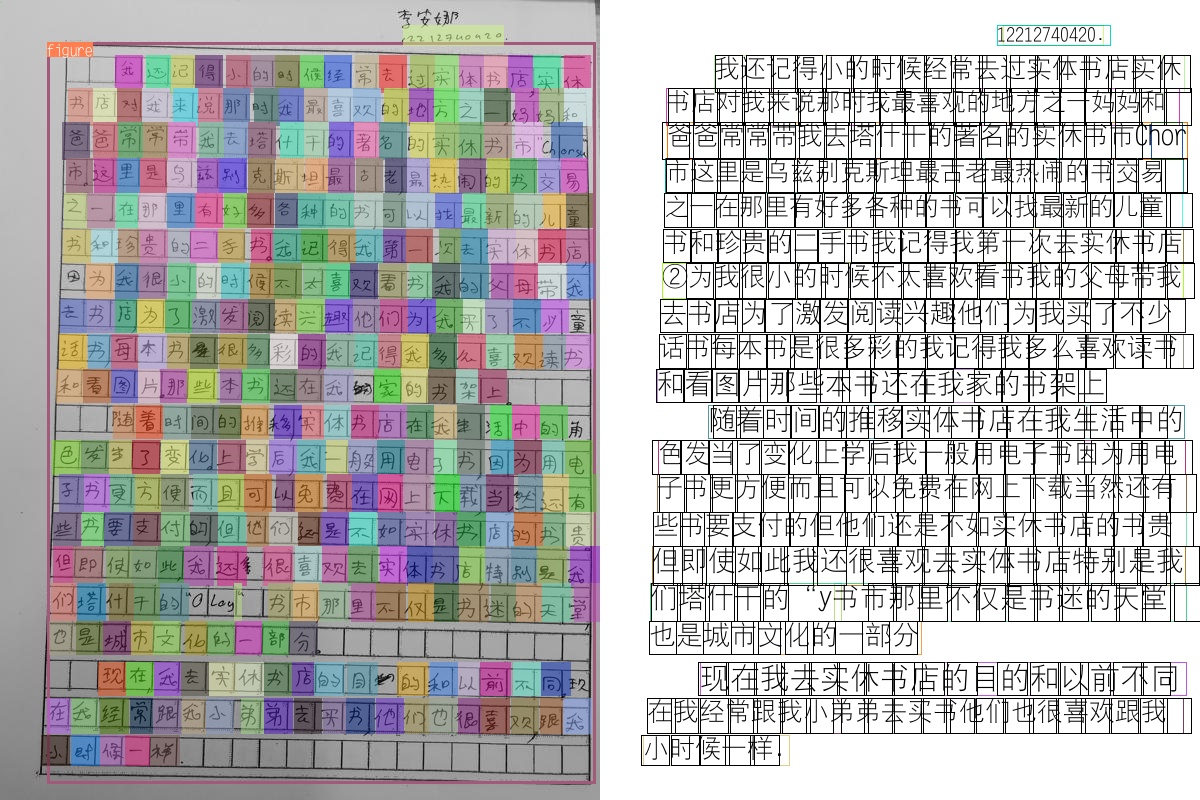 李安娜
12212740420.
figure
我还记得小的时候经常去过实体书店,实体
书店对我来说那时我最喜欢的地方之一。妈妈和
爸爸常常带我去塔什干的著名的实体书市"Chorsu
市。这里是乌兹别克斯坦最古老最热闹的书交易
之一。在那里有好多各种的书可以找最新的儿童
书和珍贵的二手书。我记得我第一次去实体书店,
因为我很小的时候不太喜欢看书,我的父母带我
去书店为了激发阅读兴趣他们为我买了不少童
话书,每本书是很多彩的。我记得我多么喜欢读书
和看图片。那些本书还在我家的书架上。
随着时间的推移,实体书店在我生活中的角
色发生了变化。上学后我一般用电子书,因为用电
子书更方便而且可以免费在网上下载,当然还有
些书要支付的,但他们还是不如实体书店的书贵。
但即使如此,我还很喜欢去实体书店,特别是我
们塔什干的"Olay"书市,那里不仅是书迷的天堂
也是城市文化的一部分。
现在,我去实体书店的目的和以前不同,现
在我经常跟我小弟弟去买书,他们也很喜欢,跟我
小时候一样.
12212740420.
我还记得小的时候经常去过实体书店实休
书店对我来说那时我最喜观的地方之一妈妈和
爸爸常常带我去塔什干的著名的实休书市Chor
市这里是乌兹别克斯坦最古老最热闹的书交易
之一在那里有好多各种的书可以找最新的儿童
书和珍贵的二手书我记得我第一次去实休书店
②为我很小的时候不太喜欢看书我的父母带我
去书店为了激发阅读兴趣他们为我买了不少
话书每本书是很多彩的我记得我多么喜欢读书
和看图片那些本书还在我家的书架上
随着时间的推移实体书店在我生活中的
色发当了变化上学后我一般用电子书因为用电
子书更方便而且可以免费在网上下载当然还有
些书要支付的但他们还是不如实休书店的书贵
但即使如此我还很喜观去实体书店特别是我
们塔什干的“y书市那里不仅是书迷的天堂
也是城市文化的一部分
现在我去实休书店的目的和以前不同
在我经常跟我小弟弟去买书他们也很喜欢跟我
小时候一样.